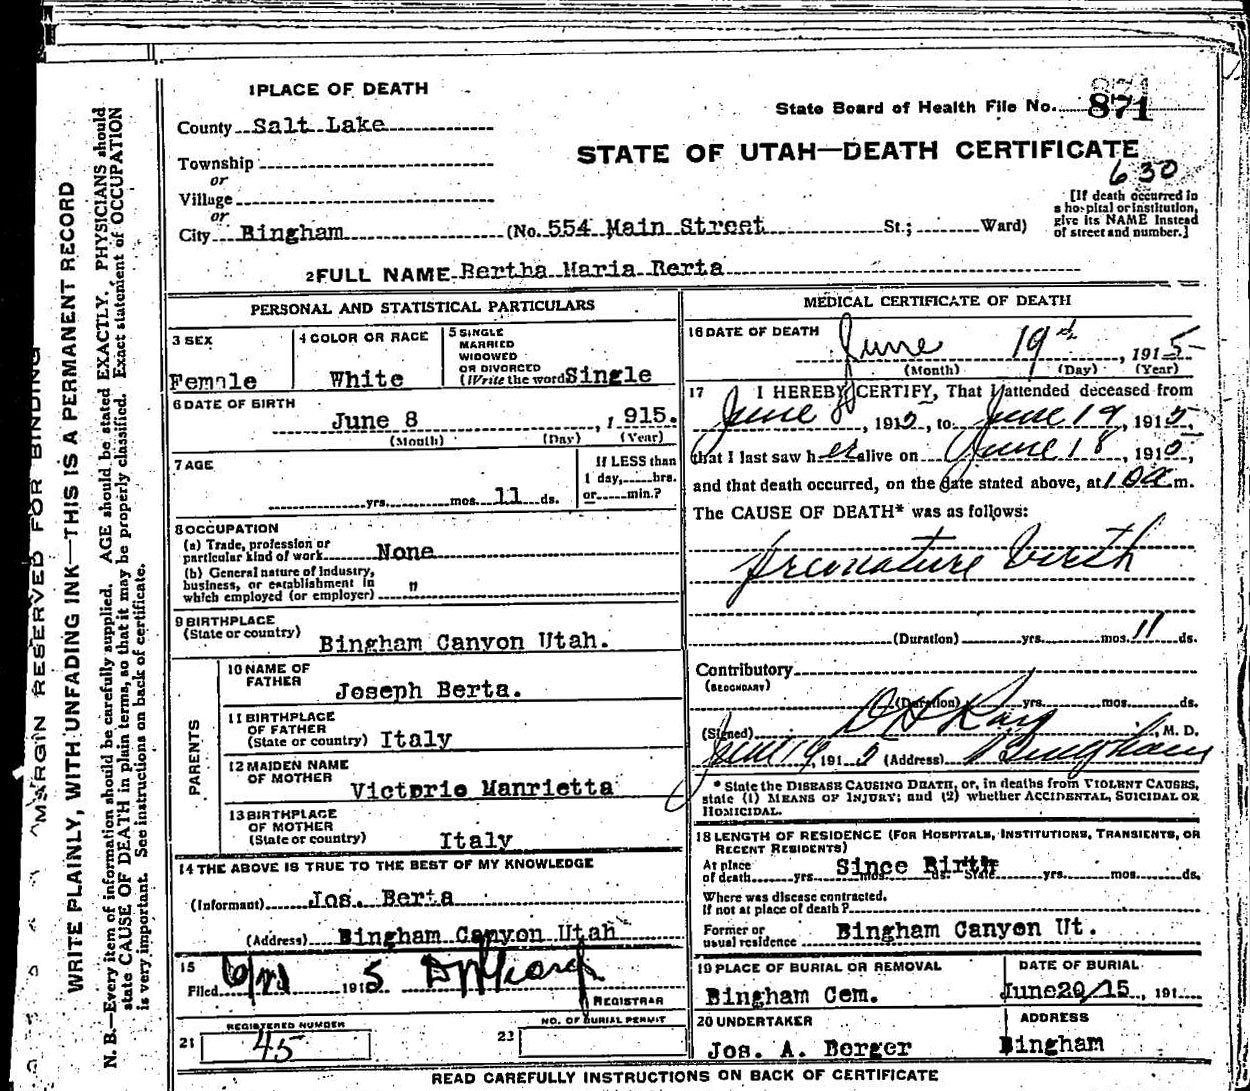 1 PLACE OF DEATH
State Board of Health File No. 871
County Salt Lake
STATE OF UTAH—DEATH CERTIFICATE
630
Township
or
Village
or
City Bingham (No. 554 Main Street St.; Ward)
[If death occurred in
a hospital or institution,
give its NAME instead
of street and number.]
2 FULL NAME Bertha Maria Berta
PERSONAL AND STATISTICAL PARTICULARS
3 SEX
Female
4 COLOR OR RACE
White
5 SINGLE
MARRIED
WIDOWED
OR DIVORCED
(Write the word) Single
6 DATE OF BIRTH
June 8, 1915.
(Month) (Day) (Year)
7 AGE
yrs. mos. 11 ds.
If LESS than
1 day, hrs.
or min.?
8 OCCUPATION
(a) Trade, profession or
particular kind of work None
(b) General nature of industry,
business, or establishment in
which employed (or employer) "
9 BIRTHPLACE
(State or country) Bingham Canyon Utah.
PARENTS
10 NAME OF
FATHER
Joseph Berta.
11 BIRTHPLACE
OF FATHER
(State or country) Italy
12 MAIDEN NAME
OF MOTHER
Victorie Manrietta
13 BIRTHPLACE
OF MOTHER
(State or country) Italy
14 THE ABOVE IS TRUE TO THE BEST OF MY KNOWLEDGE
(Informant) Jos. Berta
(Address) Bingham Canyon Utah
15
Filed 191 5
REGISTRAR
REGISTERED NUMBER
21 45
NO. OF BURIAL PERMIT
22
MEDICAL CERTIFICATE OF DEATH
16 DATE OF DEATH
June 19th, 1915
(Month) (Day) (Year)
17 I HEREBY CERTIFY, That I attended deceased from
June 8, 1915, to June 19, 1915,
that I last saw her alive on June 18, 1915,
and that death occurred, on the date stated above, at m.
The CAUSE OF DEATH* was as follows:
Premature birth
(Duration) yrs. mos. 11 ds.
Contributory
(SECONDARY)
(Duration) yrs. mos. ds.
(Signed) M. D.
June 19, 191 5 (Address) Bingham
* State the DISEASE CAUSING DEATH, or, in deaths from VIOLENT CAUSES,
state (1) MEANS OF INJURY; and (2) whether ACCIDENTAL, SUICIDAL OR
HOMICIDAL.
18 LENGTH OF RESIDENCE (FOR HOSPITALS, INSTITUTIONS, TRANSIENTS, OR
RECENT RESIDENTS)
At place
of death yrs. mos. ds. State yrs. mos. ds.
Since Birth
Where was disease contracted,
if not at place of death?
Former or
usual residence Bingham Canyon Ut.
19 PLACE OF BURIAL OR REMOVAL
Bingham Cem.
DATE OF BURIAL
June 20/15, 191
20 UNDERTAKER
Jos. A. Berger
ADDRESS
Bingham
READ CAREFULLY INSTRUCTIONS ON BACK OF CERTIFICATE
MARGIN RESERVED FOR BINDING
WRITE PLAINLY, WITH UNFADING INK—THIS IS A PERMANENT RECORD
N. B.—Every item of information should be carefully supplied. AGE should be stated EXACTLY. PHYSICIANS should
state CAUSE OF DEATH in plain terms, so that it may be properly classified. Exact statement of OCCUPATION
is very important. See instructions on back of certificate.